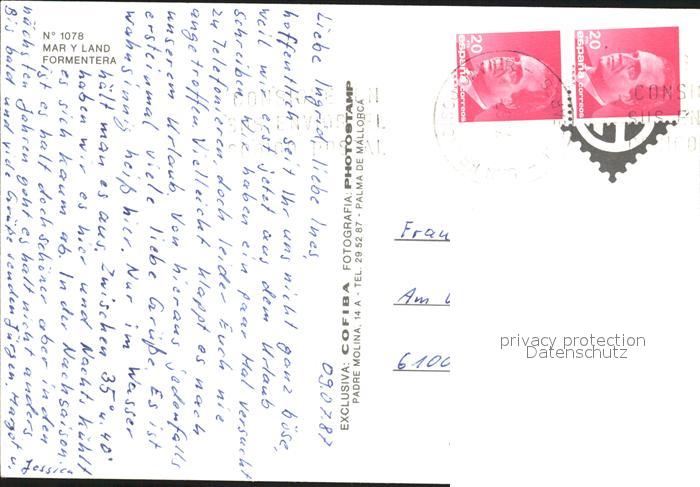 N° 1078
MAR Y LAND
FORMENTERA
09.07.87
Liebe Ingrid, liebe Ines,
hoffentlich seit Ihr uns nicht ganz böse,
weil wir erst jetzt aus dem Urlaub
schreiben. Wir haben ein paar Mal versucht
zu telefonieren, doch leider Euch nie
angetroffen. Vielleicht klappt es nach
unserem Urlaub. Von hieraus jedenfalls
ersteinmal viele liebe Grüße. Es ist
wahnsinnig heiß hier. Nur im Wasser
hält man es aus. Zwischen 35° u. 40°
haben wir es hier und Nachts kühlt
es sich kaum ab. In der Nachsaison
ist es halt doch schöner aber in den
nächsten Jahren geht es halt nicht anders.
Bis bald und viele Grüße senden Jürgen, Margot u.
Jessica
EXCLUSIVA: COFIBA FOTOGRAFIA: PHOTOSTAMP
PADRE MOLINA, 14 A - TEL. 29 52 87 - PALMA DE MALLORCA
20 PTA
españa correos
20 PTA
españa correos
CONSIGN
SUS EN
Frau
Am
6100
privacy protection
Datenschutz